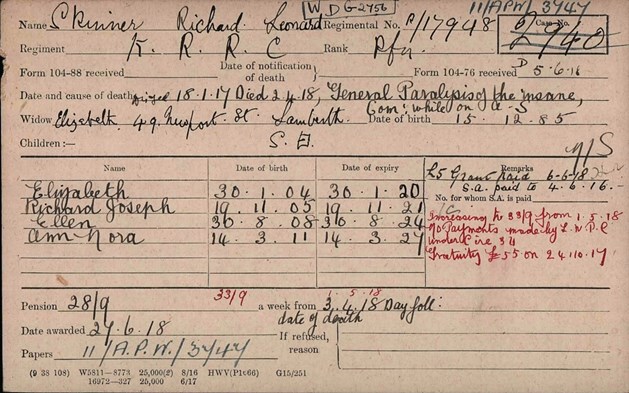 W DG-2756 11/APW/3747
Name Skinner Richard Leonard Regimental No. P/17948 Case No. 2940
Regiment K. R. R. C Rank Pfn
Form 104-88 received Date of notification of death Form 104-76 received D 5.6.18
Date and cause of death 18.1.17 Died 2.4.18, General Paralysis of the insane,
Com: while on A.S
Widow Elizabeth 49 Newport St. Lambeth Date of birth 15. 12. 85
Children:— S. E. N/S
Name Date of birth Date of expiry Remarks
£5 Grant Paid 6-6-18
S.A. paid to 4.6.18.-
No. for whom S.A. is paid
Elizabeth 30.1.04 30.1.20
Richard Joseph 19.11.05 19.11.21
Ellen 30.8.08 30.8.24
Ann Nora 14.3.11 14.3.27
Increasing to 33/9 from 1.5.18
No Payments made by L.W.P.C
under Circ 34
Gratuity £55 on 24.10.17.
Pension 28/9 33/9 a week from 1.5.18 3.4.18 Day foll:
date of death
Date awarded 27.6.18 If refused, reason
Papers 11/A.P.W./3747
(9 38 108) W5811—8773 25,000(#) 8/16 HWV(P1966) G15/251
16972—327 25,000 6/17